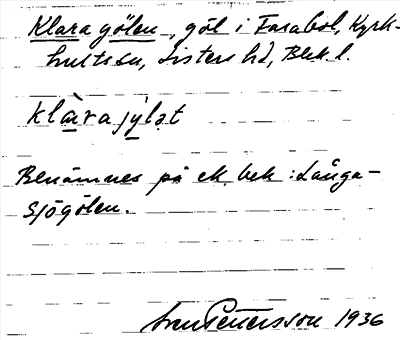 Klara gölen, göl i Farabol, Kyrk-
hults sn, Listers hd, Blek. l.
klàra jylət
Benämnes på ek. bek: Långa-
sjögölen.
Sven Pettersson 1936